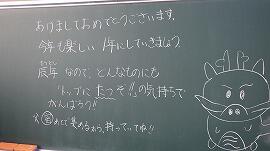 あけましておめでとうございます。
今年も楽しい1年にしていきましょう。
たつどし
辰年なので、どんなものにも
「トップにたつぞ!!」の気持ちで
がんばろう!!
あとで集めるから、持っていてね!!